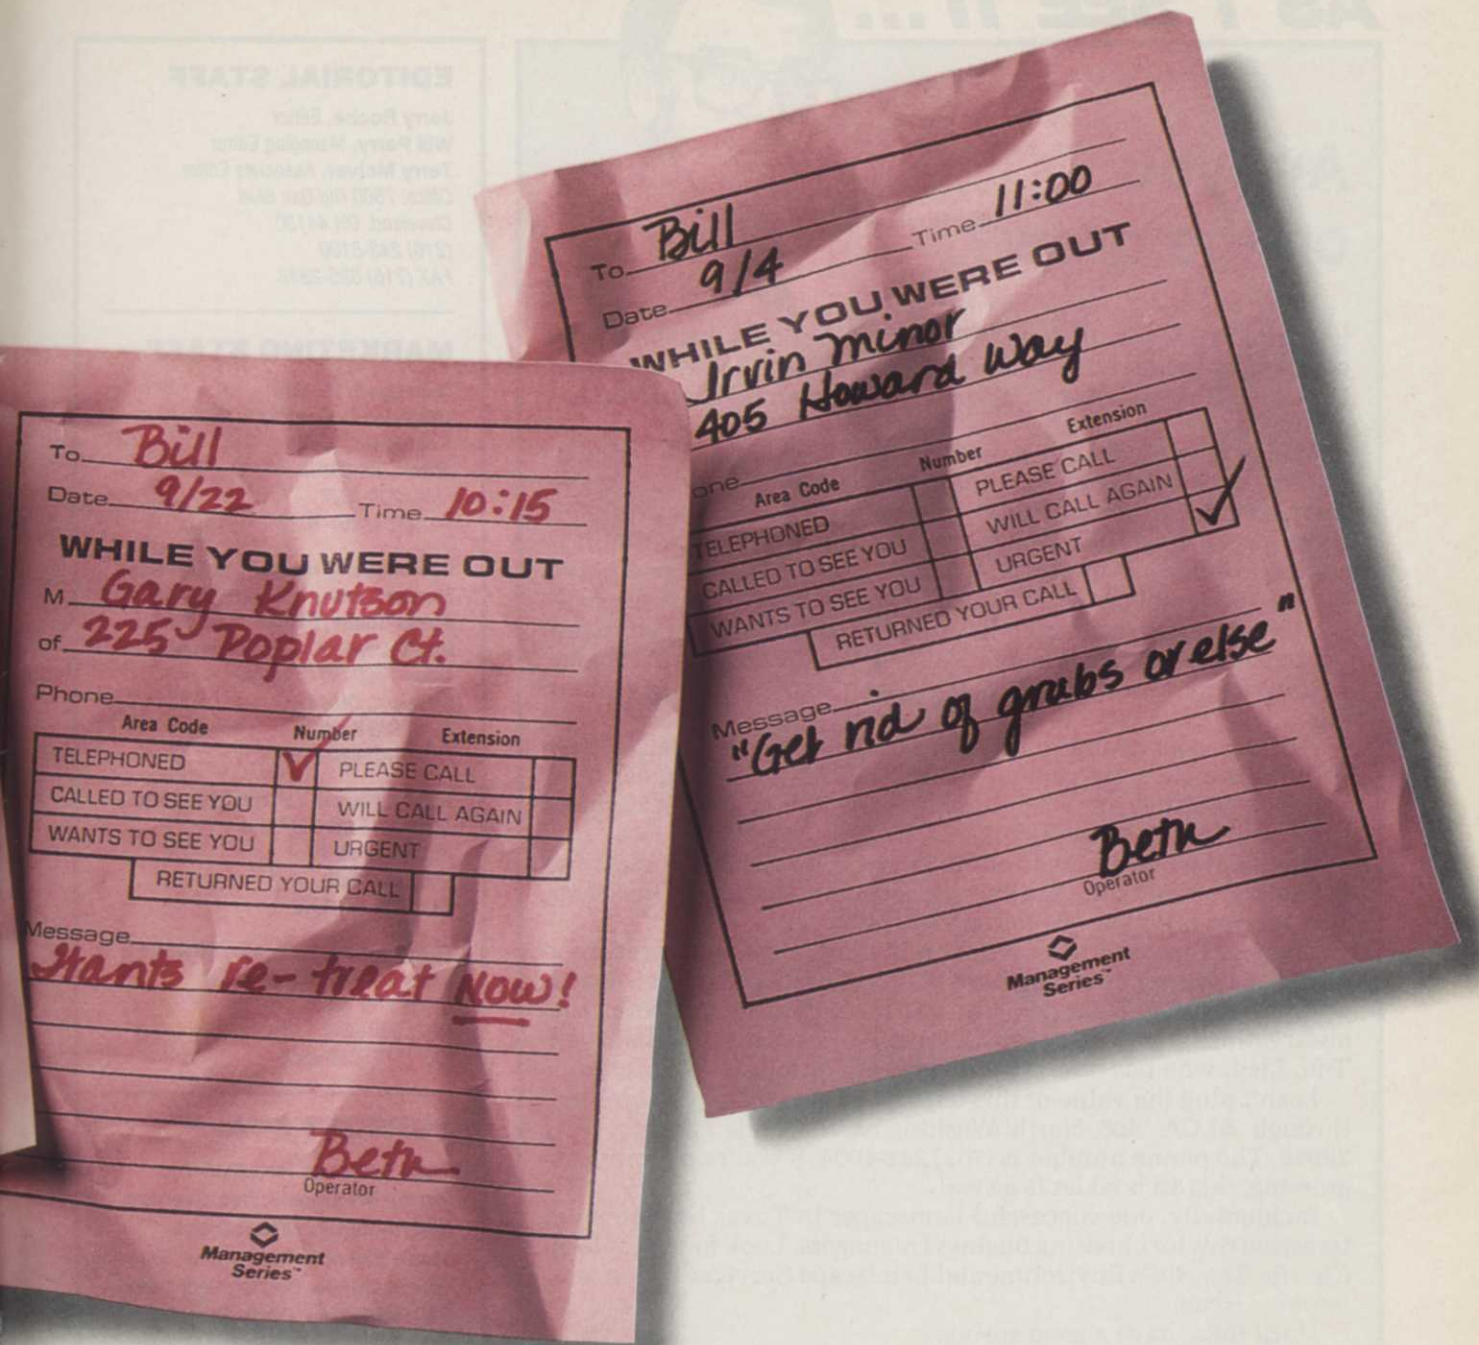 To Bill
Date 9/22 Time 10:15
WHILE YOU WERE OUT
M Gary Knutson
of 225 Poplar Ct.
Phone
Area Code Number Extension
TELEPHONED ✓ PLEASE CALL
CALLED TO SEE YOU WILL CALL AGAIN
WANTS TO SEE YOU URGENT
RETURNED YOUR CALL
Message
Wants re-treat NOW!
Beth
Operator
Management
Series™
To Bill
Date 9/4 Time 11:00
WHILE YOU WERE OUT
Irvin Minor
405 Howard Way
one
Area Code Number Extension
TELEPHONED PLEASE CALL
CALLED TO SEE YOU WILL CALL AGAIN
WANTS TO SEE YOU URGENT ✓
RETURNED YOUR CALL
Message
"Get rid of grubs or else"
Beth
Operator
Management
Series™